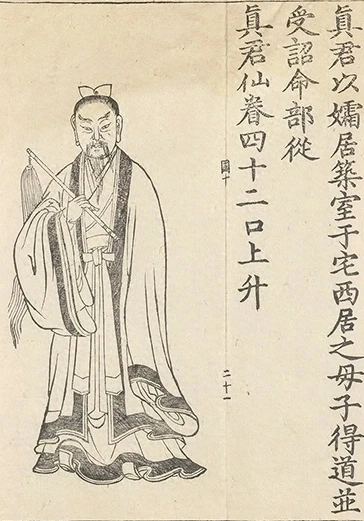 真君以孀居築室于宅西居之母子得道並
受詔命部從
真君仙眷四十二口上升
圖十
二十一